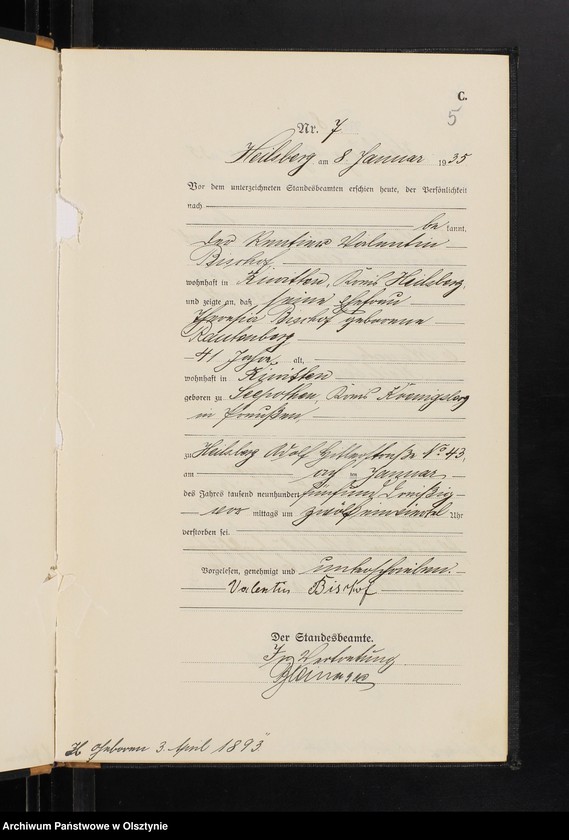 C.
5
Nr. 7
Heilsberg am 8. Januar 1935
Vor dem unterzeichneten Standesbeamten erschien heute, der Persönlichkeit
nach
be kannt,
der Rentier Valentin
Bischof
wohnhaft in Kiwitten, Kreis Heilsberg,
und zeigte an, daß seine Ehefrau
Theresia Bischof geborene
Rautenberg
41 Jahre alt,
wohnhaft in Kiwitten
geboren zu Seepothen, Kreis Koenigsberg
in Preußen,
zu Heilsberg Adolf Hitlerstraße No 43,
am acht im Januar
des Jahres tausend neunhundert fünfund dreißig
vor mittags um zwölfeinviertel Uhr
verstorben sei.
Vorgelesen, genehmigt und unterschrieben.
Valentin Bischof
Der Standesbeamte.
In Vertretung
H geboren 3. April 1893
Archiwum Państwowe w Olsztynie